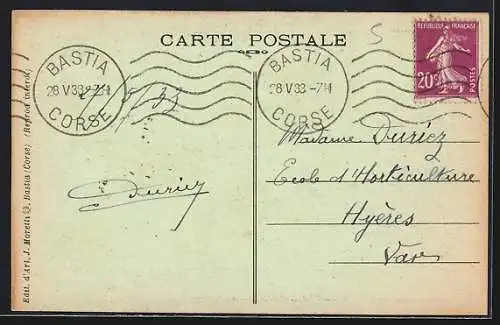 CARTE POSTALE
S
BASTIA
28 V 33 -7H
CORSE
BASTIA
28 V 33 -7H
CORSE
REPUBLIQUE FRANÇAISE
20c
POSTES
5/33
Duriez
Madame Duriez
Ecole d'Horticulture
Hyères
Var
Edit. d'Art, J. Moretti, Bastia (Corse) (Reprod. interd.)